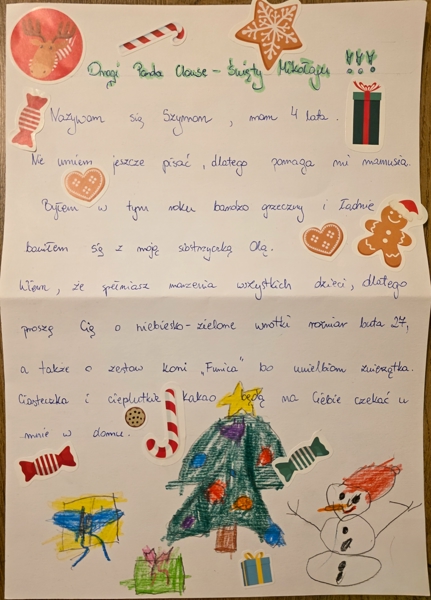 Drogi Panda Clause - Święty Mikołaju !!!
Nazywam się Szymon, mam 4 lata.
Nie umiem jeszcze pisać, dlatego pomaga mi mamusia.
Byłem w tym roku bardzo grzeczny i ładnie
bawiłem się z moją siostrzyczką Olą.
Wiem, że spełniasz marzenia wszystkich dzieci, dlatego
proszę Cię o niebiesko-zielone wrotki rozmiar buta 27,
a także o zestaw koni „Funica" bo uwielbiam zwierzątka.
Ciasteczka i cieplutkie kakao będą na Ciebie czekać u
mnie w domu.